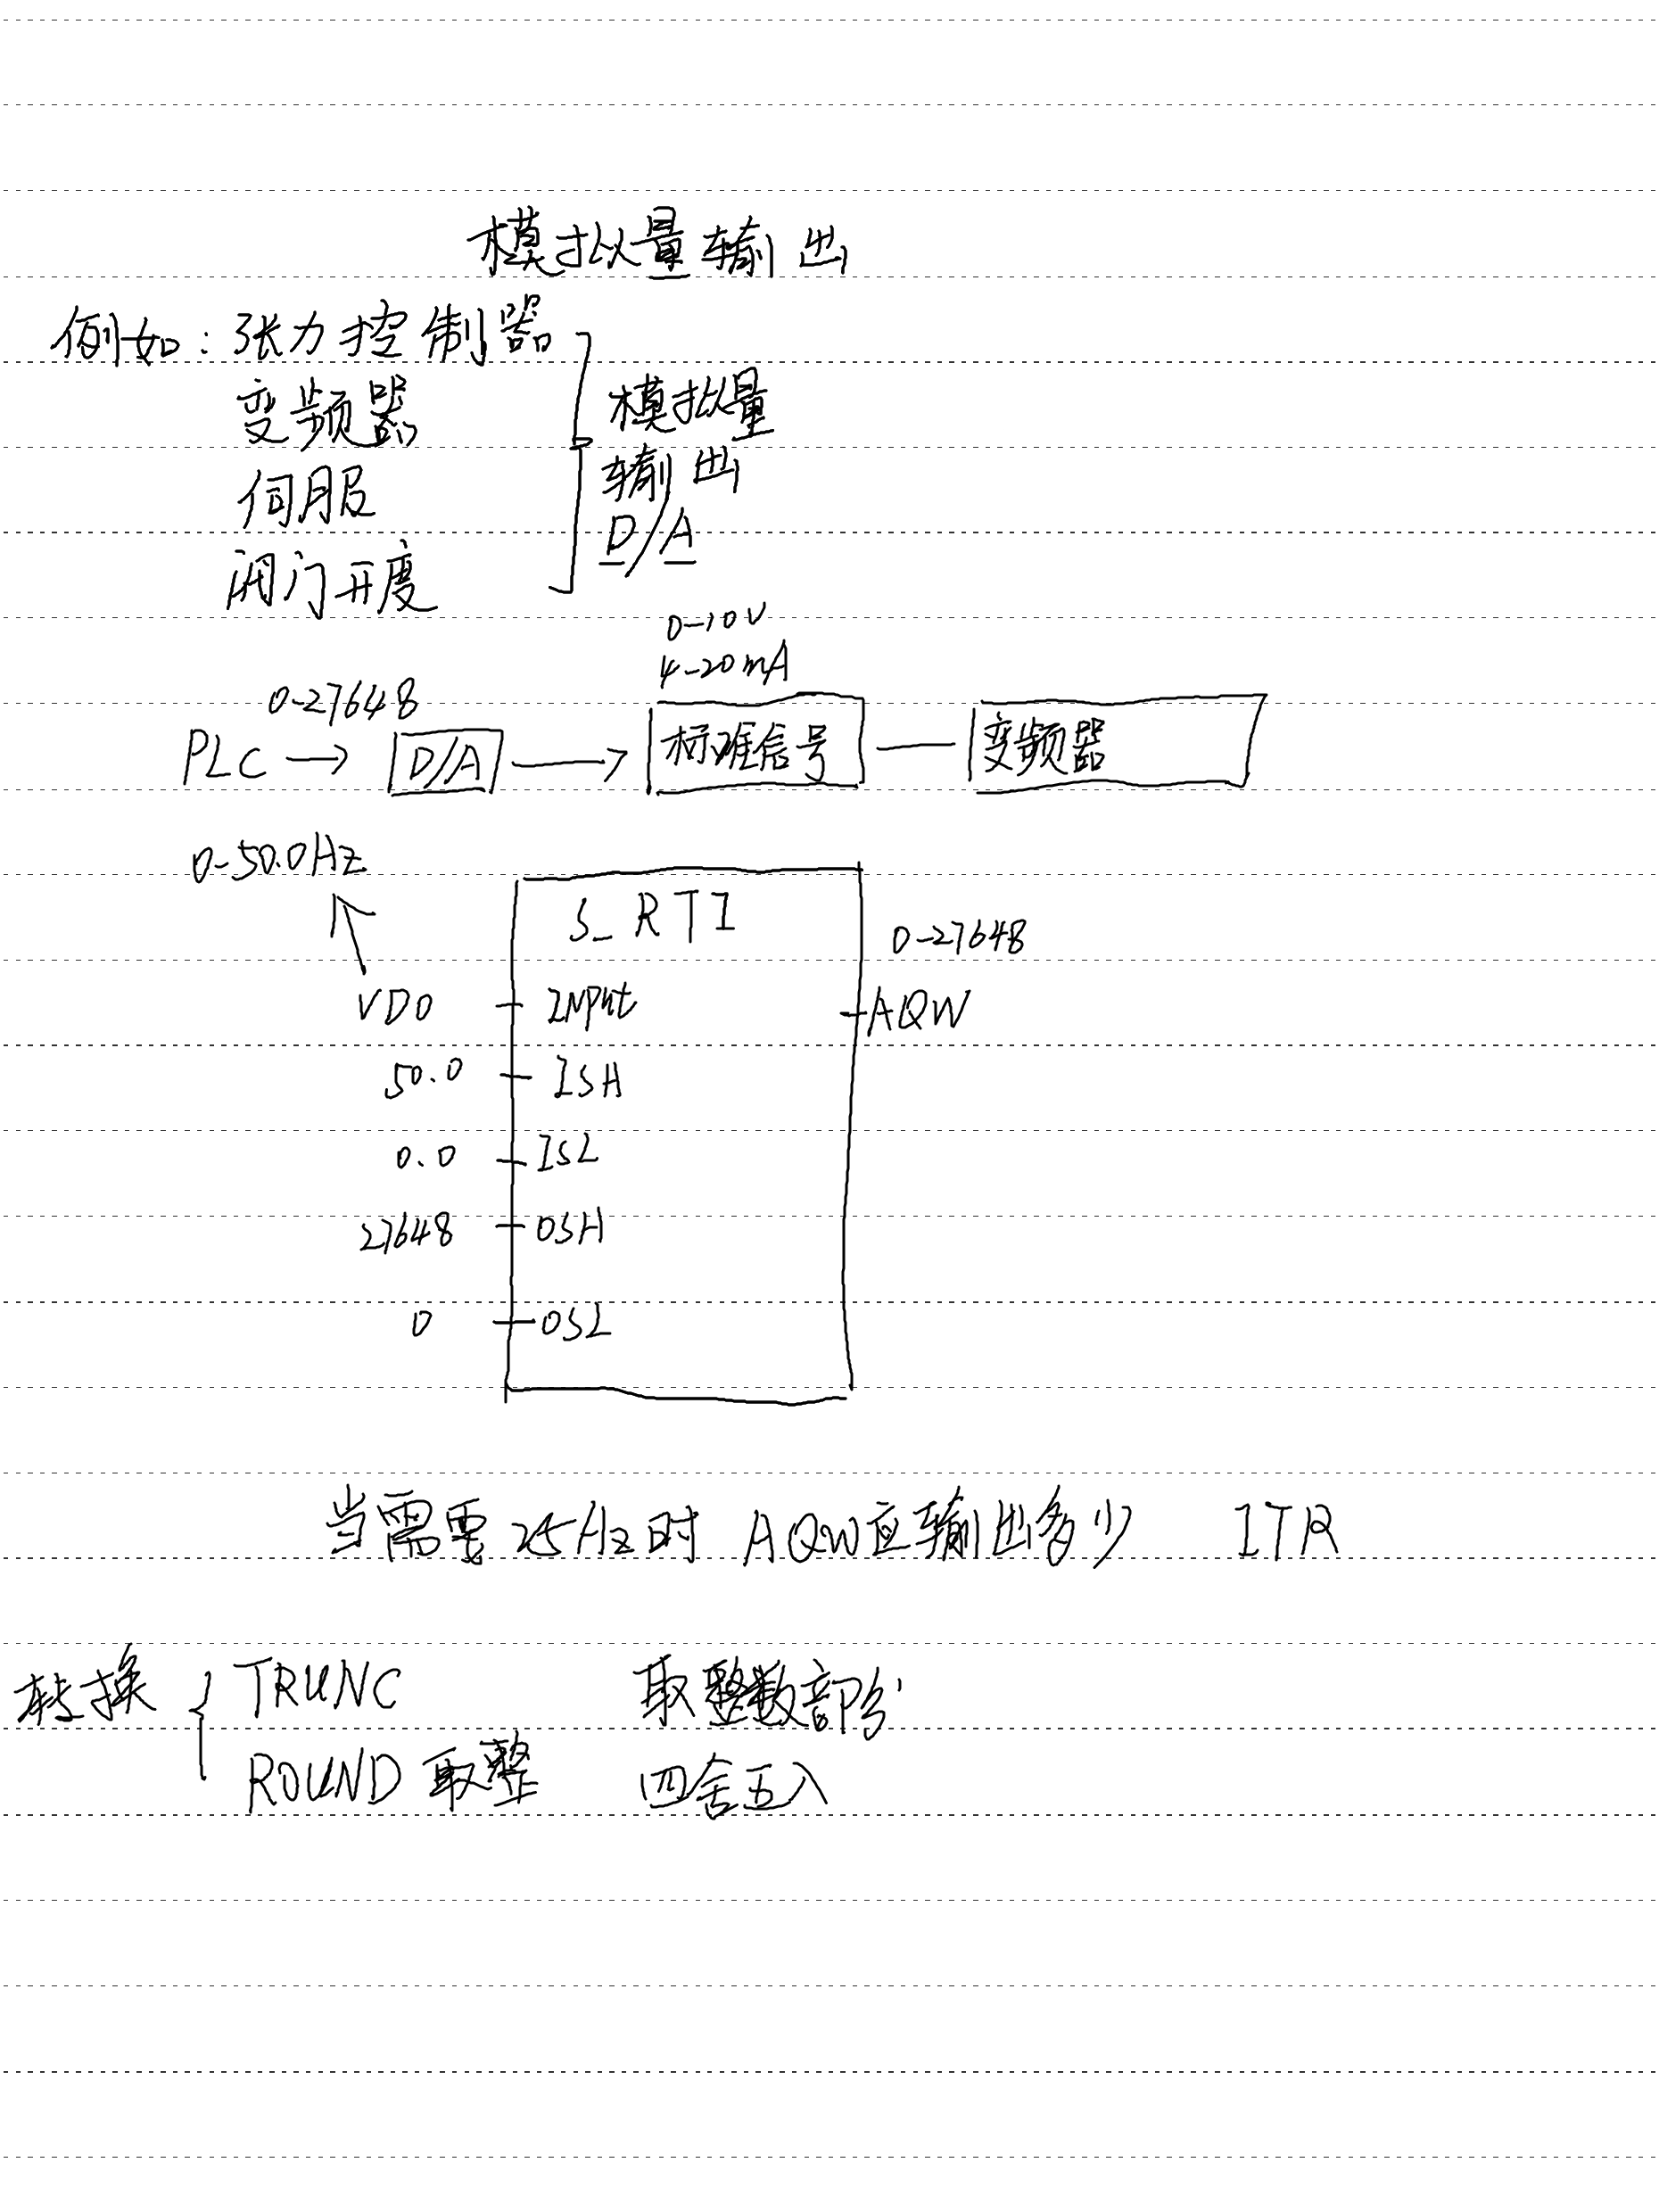 模拟量输出
例如：张力控制器
变频器
伺服
阀门开度
模拟量
输出
D/A
0-10V
4-20mA
0-27648
PLC → D/A → 标准信号 — 变频器
0-50.0Hz
S_RTI
0-27648
VD0 Input AQW
50.0 ISH
0.0 ISL
27648 OSH
0 OSL
当需要25Hz时 AQW应输出多少 ITR
转换 { TRUNC 取整数部分
ROUND 取整 四舍五入